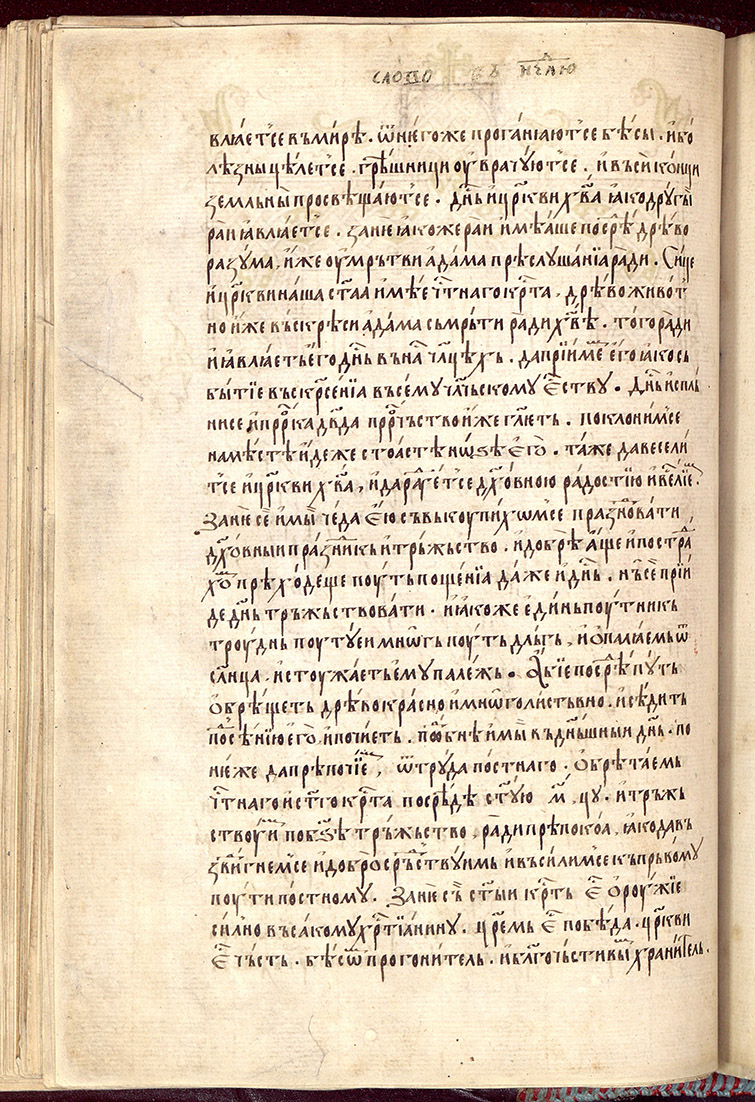 слово въ н҃елю
влꙗе́тсе въмⷩ҇ре́ . ѿ нѥго́же прогани́аютсе бѣ́сы . и҆бо
лѣ́зны цѣле́тсе . грѣ́шници оу҆врачую́тсе . и҆въсѝ ко́нци
земльны̀ просвѣща́ютсе . дн҃ь и҆цр҃кви х҃ва ꙗ҆ко дру́гы
раи ꙗ҆влꙗ́етсе . зане́ ꙗ҆коже раи и҆мѣꙗше посрⷣѣ дрѣ́во
разꙋма , и҆́же оу҆мрътви а҆да́ма прѣслꙋша́нїа ра́ди . Си́це
и҆цр҃кви на́ша ст҃аа и҆мѣе чⷭ҇тнаго крⷭ҇та , дрѣ́во живот
но и҆́же въскрѣси а҆да́ма съмръти ра́ди х҃вѣ . того́ ра́ди
и҆ꙗ҆влꙗеть е҆го̀ дн҃ь въ на чл҃цѣхь . да прїи́мѥⷨ е҆го̀ ꙗ҆ко съ
бы́тїе въскрⷭ҇енїа въсемꙋ чл҃ьскомꙋ е҆ⷭ҇ствꙋ . дн҃ь и҆сплъ
нисе и҆ прⷪ҇рка дв҃да прⷪ҇рчьство и҆́же гл҃ѥть . поклони́мсе
на мѣ́стѣ и҆де́же стоꙗстѣ но́ѕѣ е҆го̀ . та́же да весели́
тсе и҆цр҃кви х҃ва , и҆да ра́дꙋетсе дх҃о́вною ра́достїю и҆ве́лїеⷨ .
Зане́ се̏ и҆ мы̏ че́да е҆ю̀ съвькоупи́хѡмсе праⷥновати
дх҃о́вныи пра́зⷣникь и҆тръжьство . и҆добрѣ̀ а҆́ще и҆постра
хѡⷨ прѣхо́деще поу́ть поще́нїа да́же и҆дн҃ь . нъ се̏ прїи
де дн҃ь тръжьствовати . и҆ꙗ҆коже е҆ди́нь поу́тникь
троу́днь поутꙋеи мнѡ́гь поу́ть дль́гь , и҆ѡпалꙗ́емь ѿ
сл҃нца . и҆стоужа́еть е҆мꙋ палежь . А҆́бїе посрⷣѣ пꙋ́ть
ѡ҆брѣщеть дрѣ́во кра́сно и҆мнѡ́голи́стьвно . и҆сѣди́ть
поⷣ сѣ́нїю е҆го̀ и҆почїеть . поⷣѡбнѣ и҆ мы̏ въдн҃ьшныи дн҃ь . по
нѥ́же да прѣпочїеⷨ , ѿ трꙋ́да по́стнаго . ѡ҆брѣта́емь
чⷭ҇тнаго и҆ст҃го крⷭ҇та посрѣ́дѣ ст҃ую м҃ цу . и҆тръжь
ствоуи́ⷨ по бз҃ѣ тръжьство , ра́ди прѣпокоꙗ , ꙗ҆ко да въ
зⷣвигнемсе и҆добро срⷣъ́ствꙋимь и҆въсили́мсе къ пръвомꙋ
поу́ти по́стномꙋ . Зане́ съ̏ ст҃ыи крⷭ҇ть е҆ⷭ҇ ѡ҆роу́жїе
си́лно въсакомꙋ хрⷭ҇тїа́нинꙋ . цр҃емь е҆ⷭ҇ побѣ́да . цр҃кви
е҆ⷭ҇ чь́сть . бѣ́сѡⷨ прогони́тель . и҆бл҃гочьсти́выⷨ храни́тель .